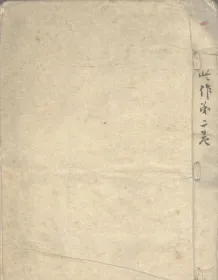 此作第二卷